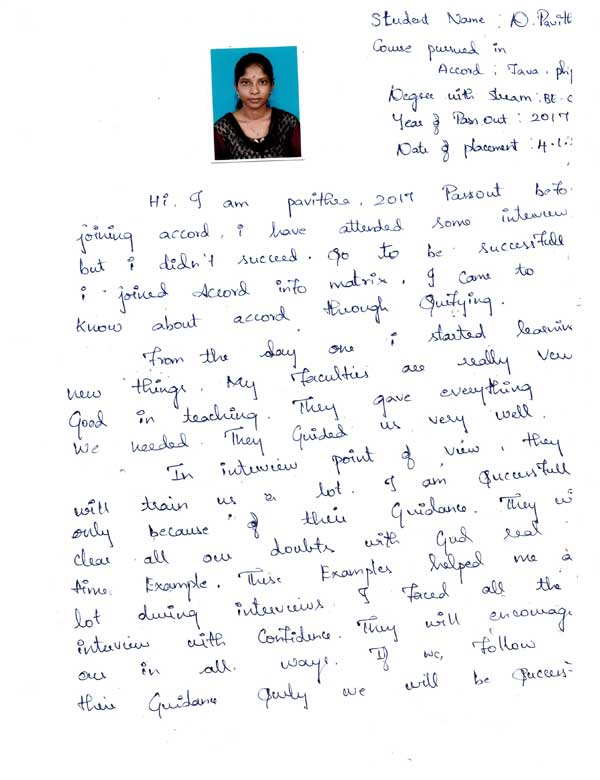 Student Name : D. Pavith
Course pursued in
Accord : Java, php
Degree with Stream : BE. C
Year of Pass Out : 2017
Date of placement : 4.1.
Hi, I am pavithra, 2017 Passout befo
joining accord, i have attended some interview
but i didn't succeed. So to be successfull
i joined Accord info matrix. I came to
know about accord through
From the day one i started learnin
new things. My Faculties are really very
Good in teaching. They gave everything
We needed. They Guided us very well.
In interview point of view, they
will train us a lot. I am Successfull
only because of their Guidance. They wi
clear all our doubts with Good real
time Example. These Examples helped me a
lot during interviews. I Faced all the
interview with Confidence. They will encourag
our in all ways. If we, Follow
their Guidance Surely we will be Success-